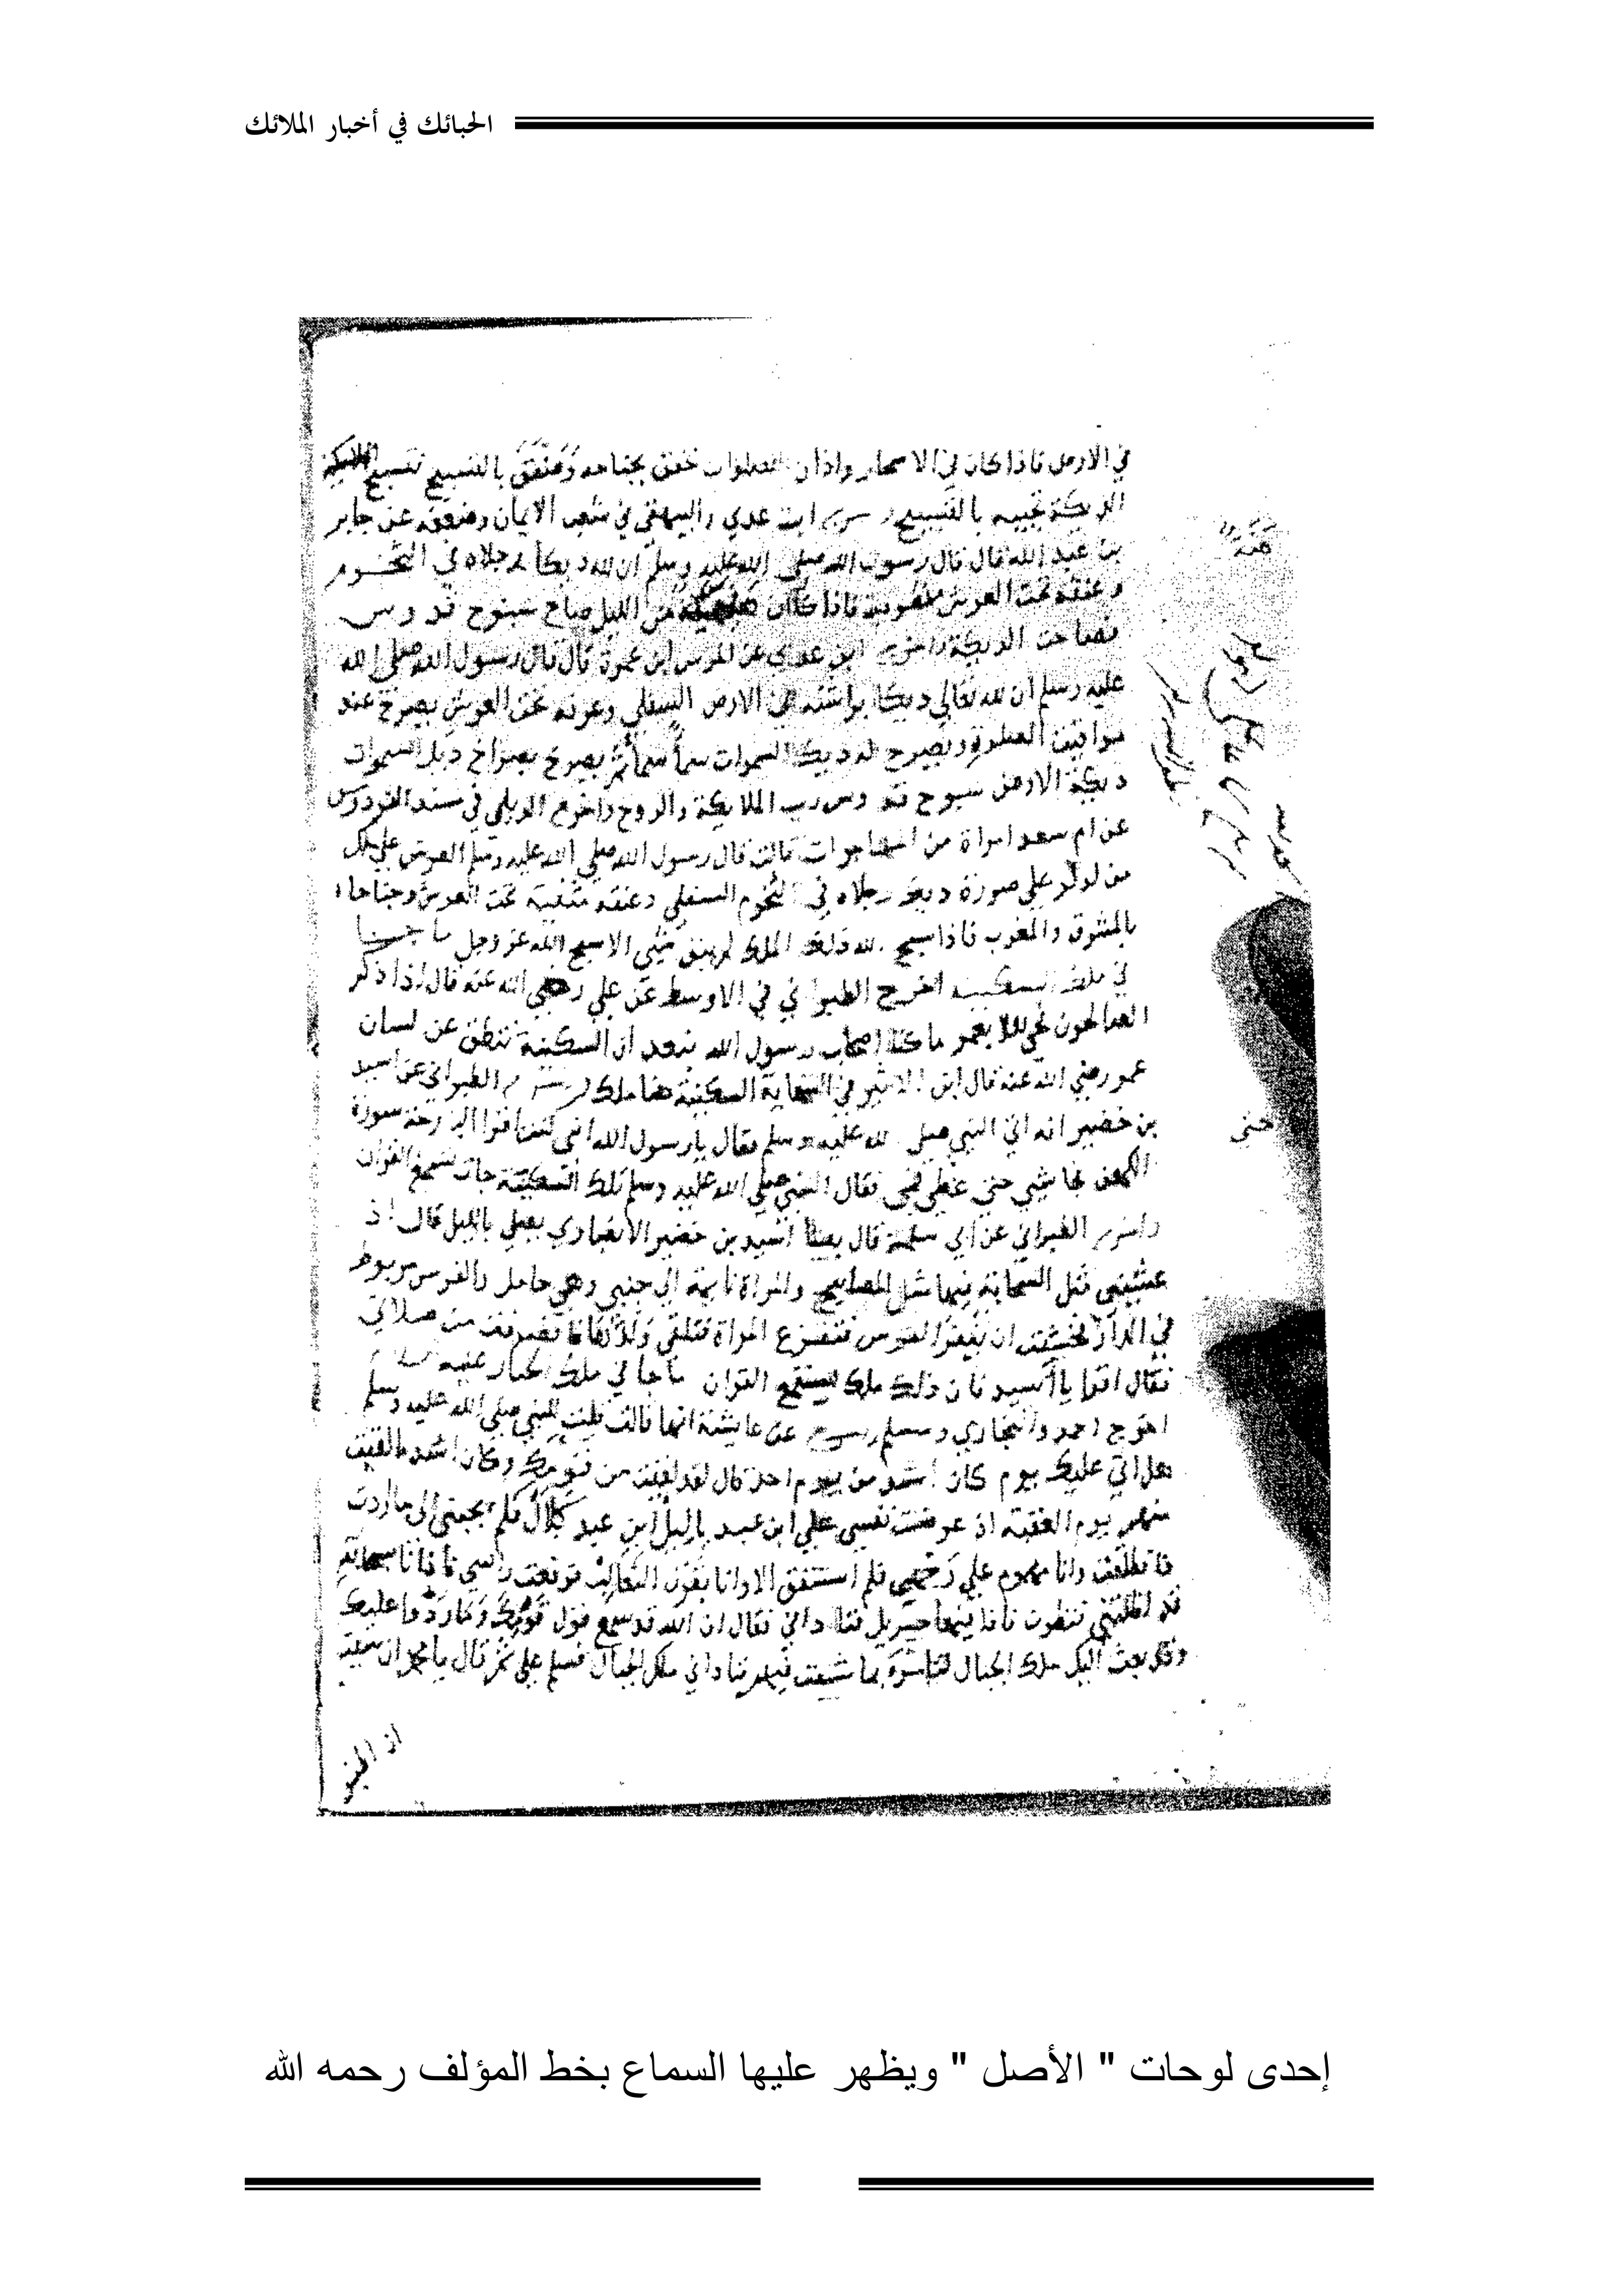 الحبائك في أخبار الملائك
في الارض فاذا كان في الاسحار واذان الصلوات خفق بجناحه وصفق بالتسبيح تسبيح
الديكة تجيبه بالتسبيح ابن عدي والبيهقي في شعب الايمان وضعفه عن جابر
بن عبد الله قال قال رسول الله صلى الله عليه وسلم ان لله ديكا رجلاه في التخوم
وعنقه تحت العرش فاذا كان من الليل صاح سبوح قدوس
فصاحت الديكة ابن عدي عن قال قال رسول الله صلى الله
عليه وسلم ان لله تعالي ديكا براثنه في الارض السفلي وعرفه تحت العرش يصرخ عند
مواقيت الصلوة ويصرخ له ديك السموات سماً سماً ثم يصرخ بصراخ ديك السموات
ديكة الارض سبوح قدوس رب الملايكة والروح واخرج الديلمي في مسند الفردوس
عن ام سعد امراة من المهاجرات قالت قال رسول الله صلي الله عليه وسلم العرش علي ملك
من لولو علي صورة ديك رجلاه في التخوم السفلي وعنقه مثنية تحت العرش وجناحاه
بالمشرق والمغرب فاذا سبح لله ذلك الملك لم يبق شي الا سبح الله عز وجل ما جـا
في ملك السكينـه اخرج الطبراني في الاوسط عن علي رضي الله عنه قال اذا ذكر
الصالحون فحي هلا بعمر ما كنا اصحاب رسول الله نبعد ان السكينة تنطق عن لسان
عمر رضي الله عنه قال ابن الاثير في النهاية السكينة هنا ملك الطبراني عن اسيد
بن حضير انه اتي النبي صلى الله عليه وسلم فقال يا رسول الله اني كنت اقرا البارحة سورة
الكهف فجا شي حتي غطي فمي فقال النبي صلي الله عليه وسلم تلك السكينة جات تسمع القران
واخرج الطبراني عن ابي سلمة قال بينا اسيد بن حضير الانصاري يصلي بالليل قال اذ
غشيتني مثل السحابة فيها مثل المصابيح والمراة نايمة الي جنبي وهي حامل والفرس مربوط
في الدار فخشيت ان ينفر الفرس فتفزع المراة فتلقي ولدها فانصرفت من صلاتي
فقال اقرا يا اسيد فان ذلك ملك يستمع القران ما جا في ملك الجبال عليه السلام
اخرج احمد والبخاري ومسلم عن عايشة انها قالت قلت للنبي صلى الله عليه وسلم
هل اتي عليك يوم كان اشد من يوم احد قال لقد لقيت من قومك وكان اشد ما لقيت
منهم يوم العقبة اذ عرضت نفسي علي ابن عبد ياليل ابن عبد كلال فلم يجبني الى ما اردت
فانطلقت وانا مهموم علي وجهي فلم استفق الا وانا بقرن الثعالب فرفعت راسي فاذا انا بسحابة
قد اظلتني فنظرت فاذا فيها جبريل فناداني فقال ان الله قد سمع قول قومك وما ردوا عليك
وقد بعث اليك ملك الجبال لتامره بما شيت فيهم فناداني ملك الجبال فسلم علي ثم قال يا محمد ان شيت
حتي
إحدى لوحات " الأصل " ويظهر عليها السماع بخط المؤلف رحمه الله